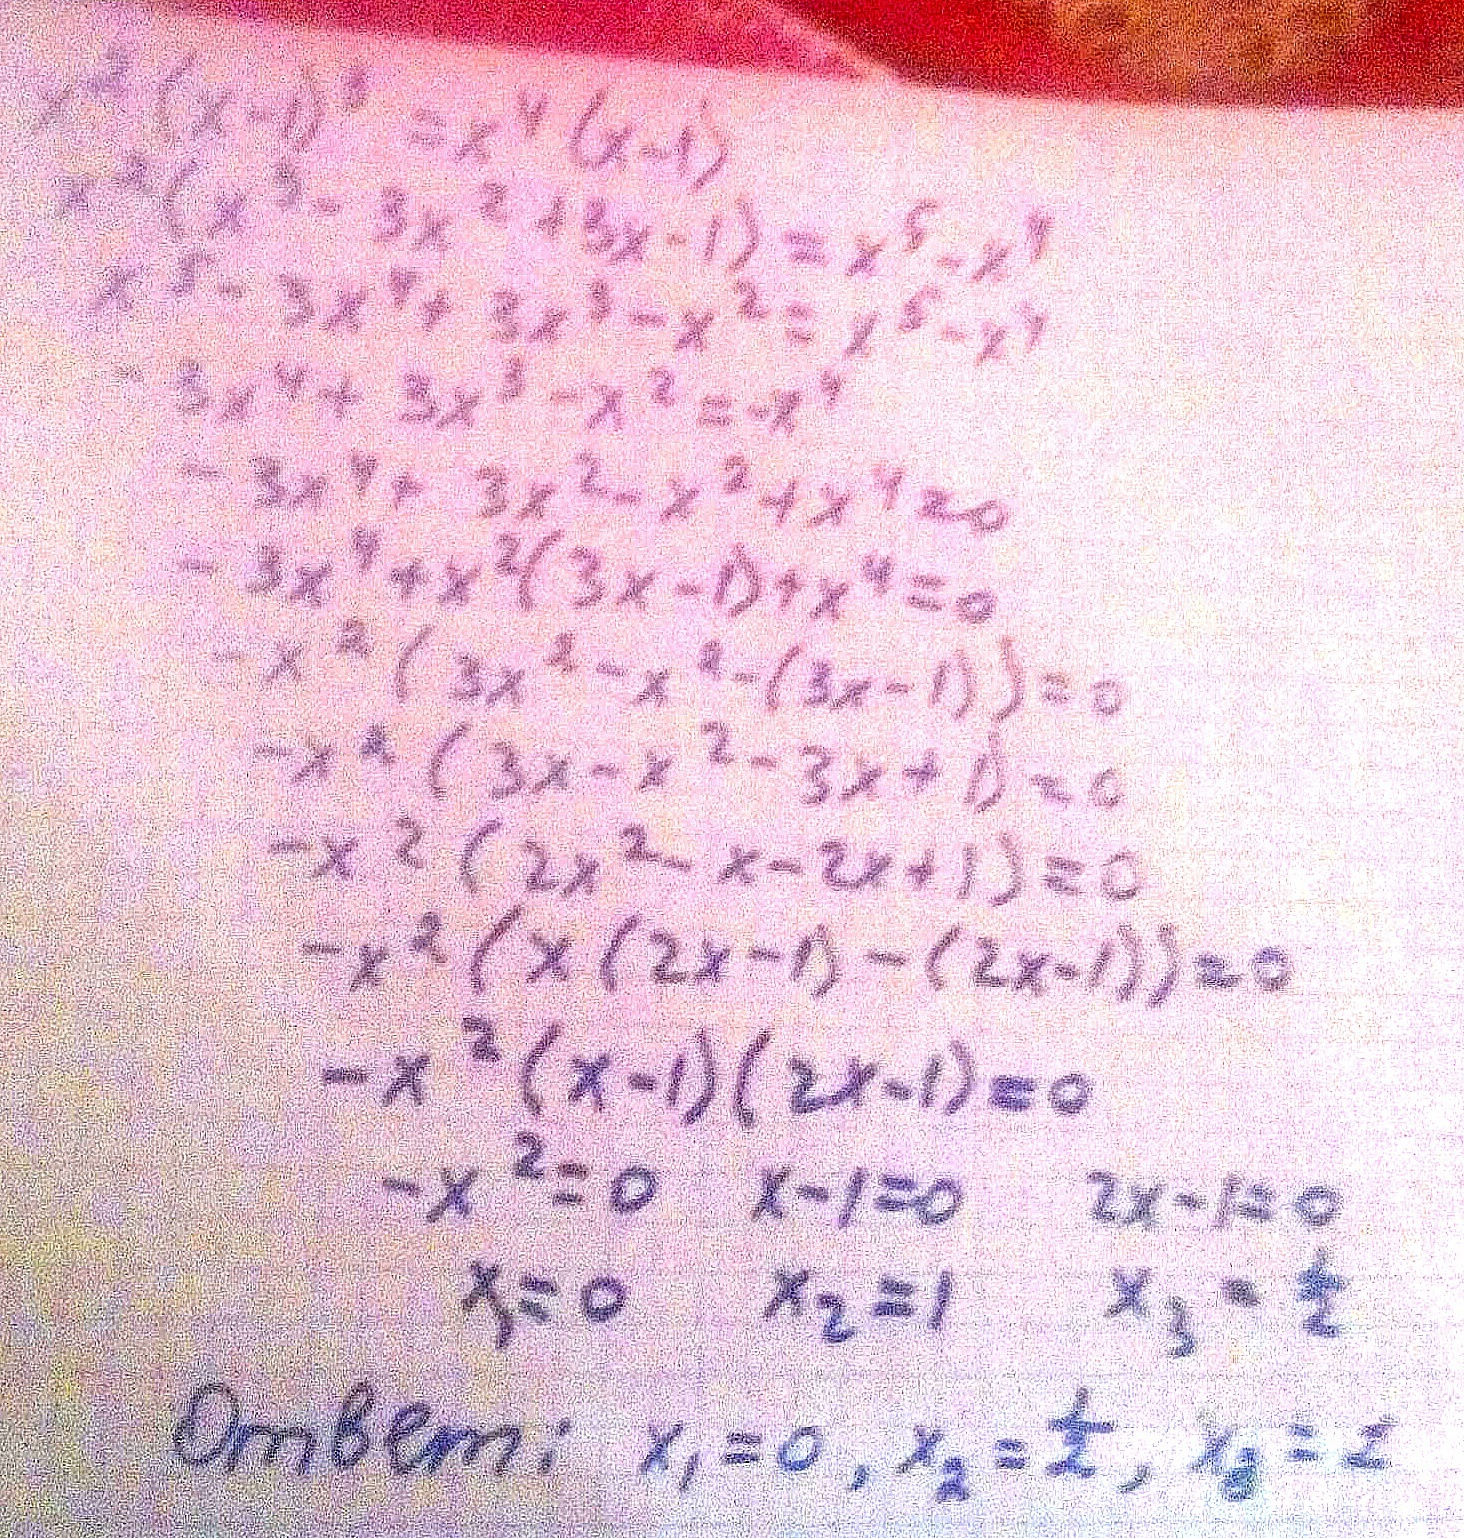 x²(x-1)³ = x⁴(x-1)
x²(x³ - 3x² + 3x - 1) = x⁵ - x⁴
x⁵ - 3x⁴ + 3x³ - x² = x⁵ - x⁴
- 3x⁴ + 3x³ - x² = -x⁴
- 3x⁴ + 3x² - x² + x⁴ = 0
- 3x⁴ + x²(3x - 1) + x⁴ = 0
- x²(3x² - x² - (3x - 1)) = 0
-x²(3x - x² - 3x + 1) = 0
-x²(2x² - x - 2x + 1) = 0
-x²(x(2x-1) - (2x-1)) = 0
-x²(x-1)(2x-1) = 0
-x² = 0 x-1=0 2x-1=0
x₁=0 x₂=1 x₃=½
Ответ: x₁=0, x₂=½, x₃=1